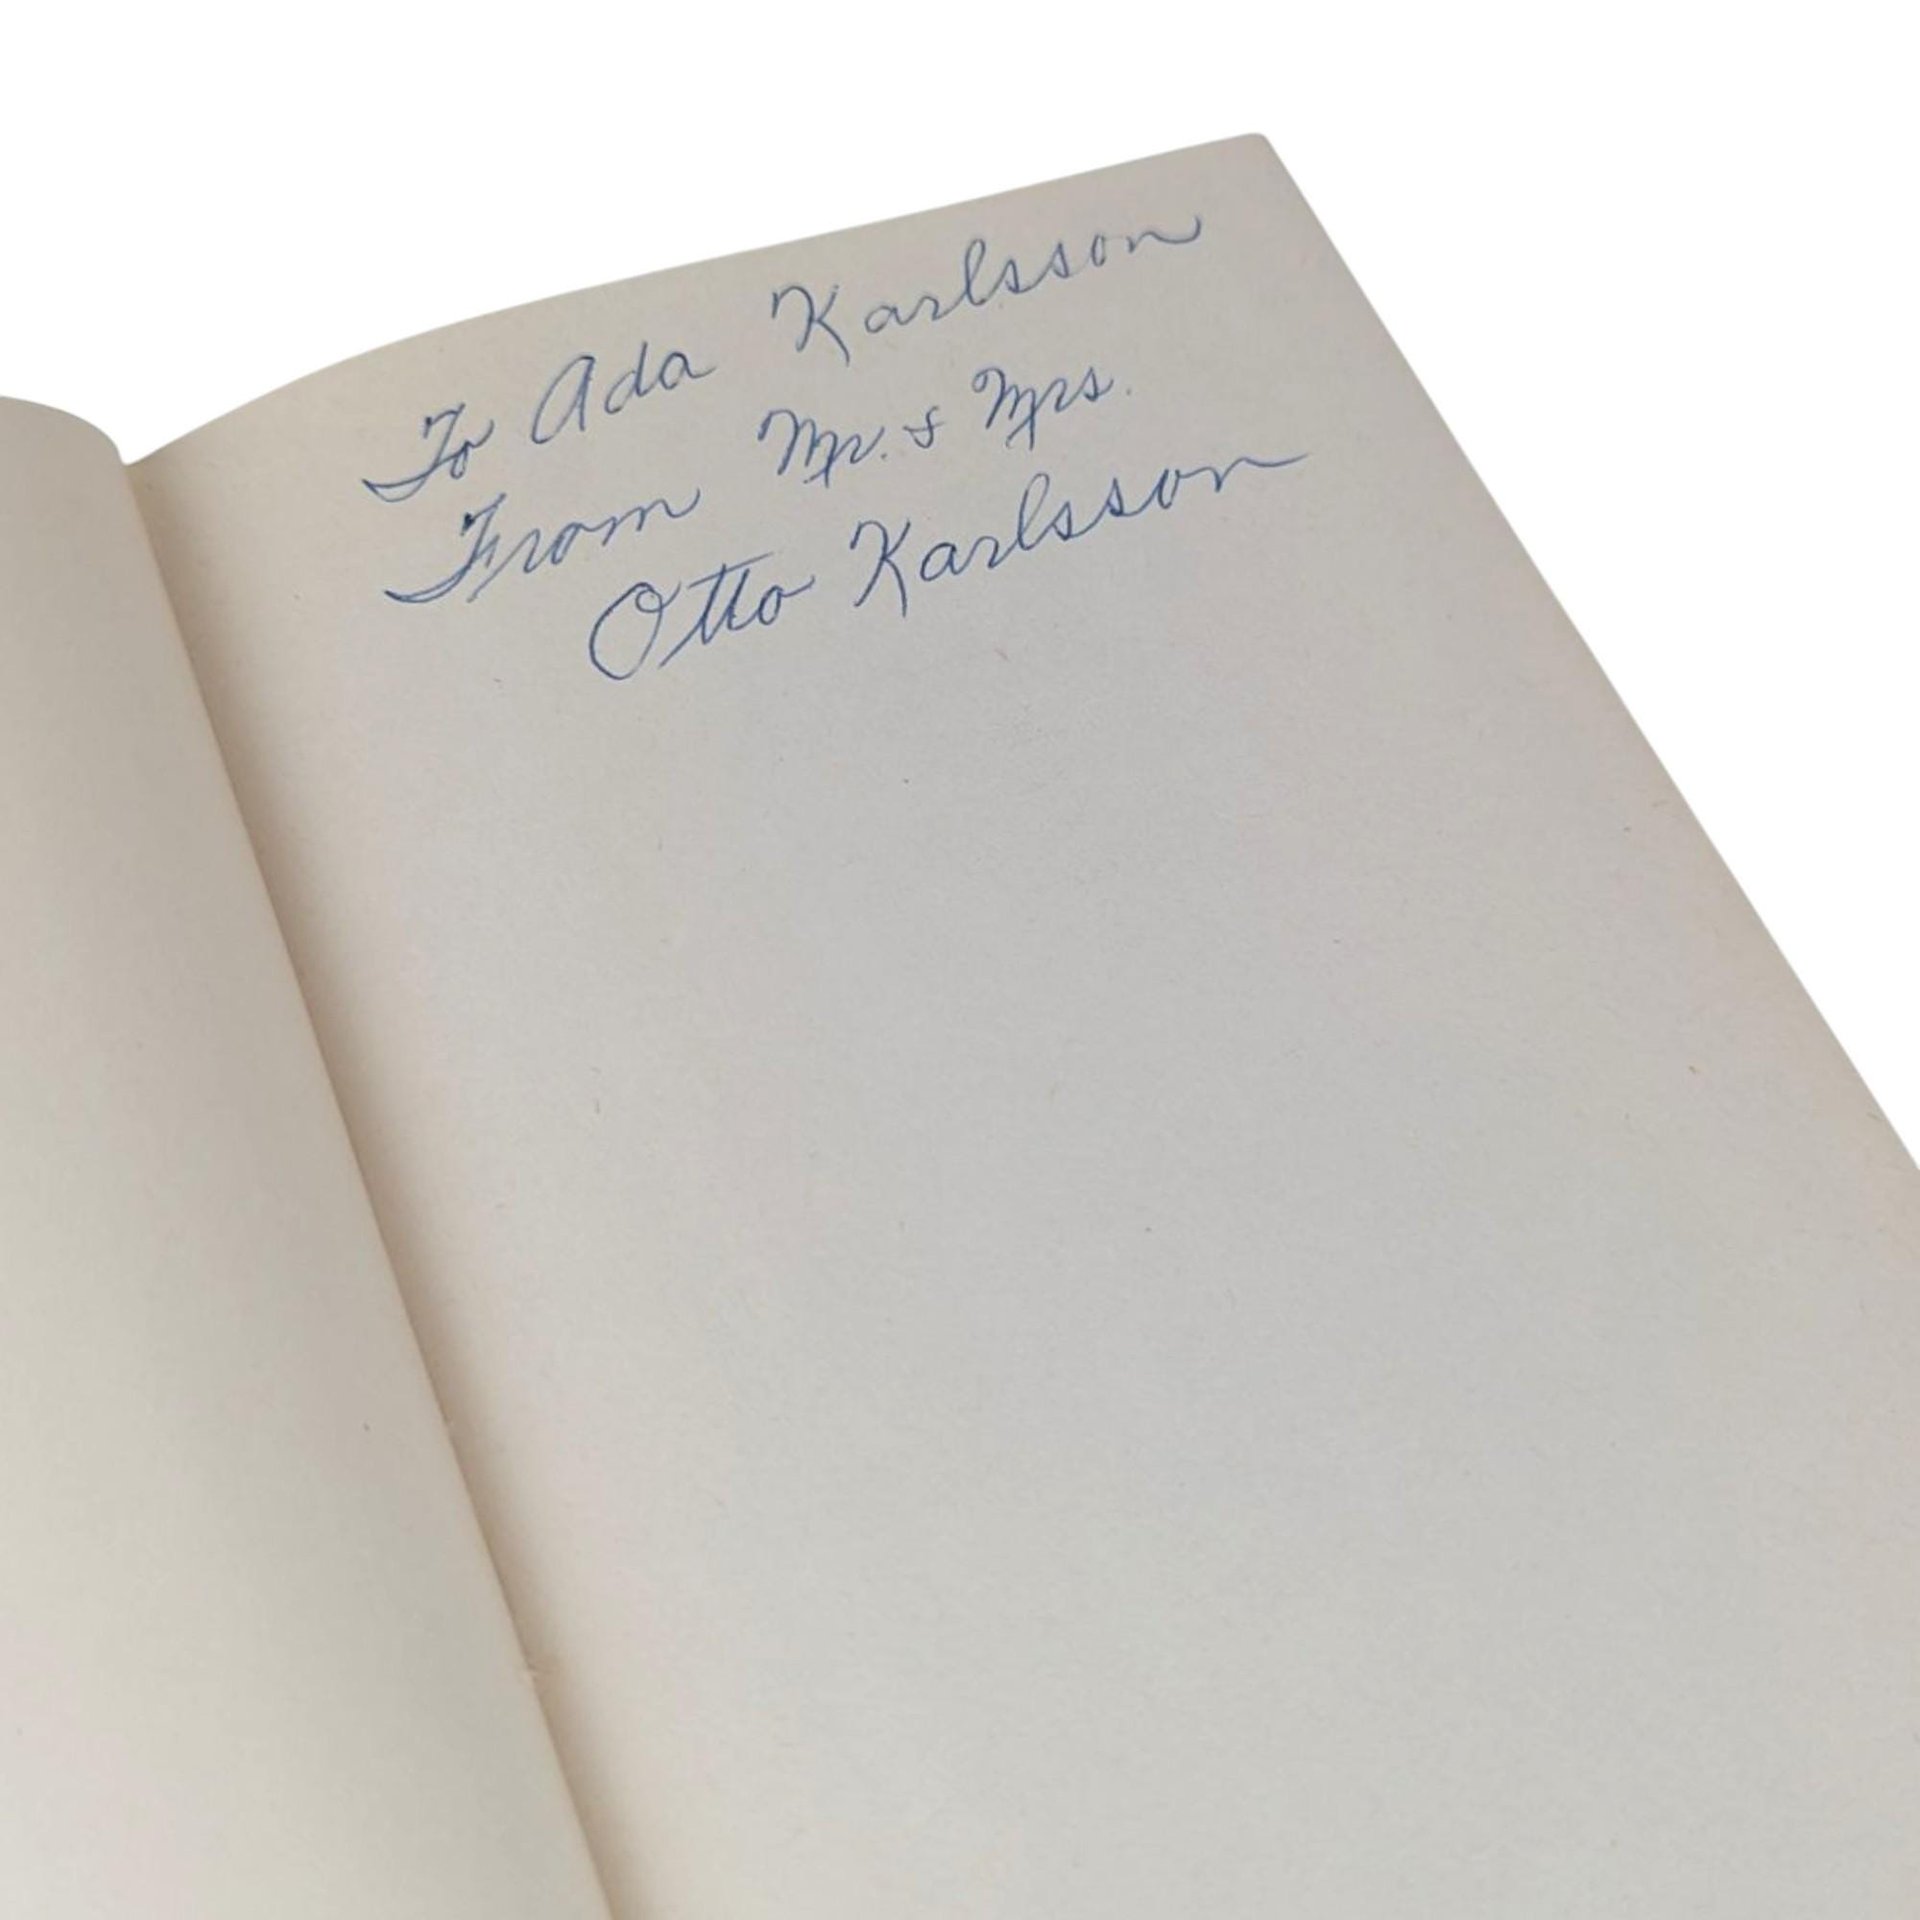 To Ada Karlsson
From Mr. & Mrs.
Otto Karlsson